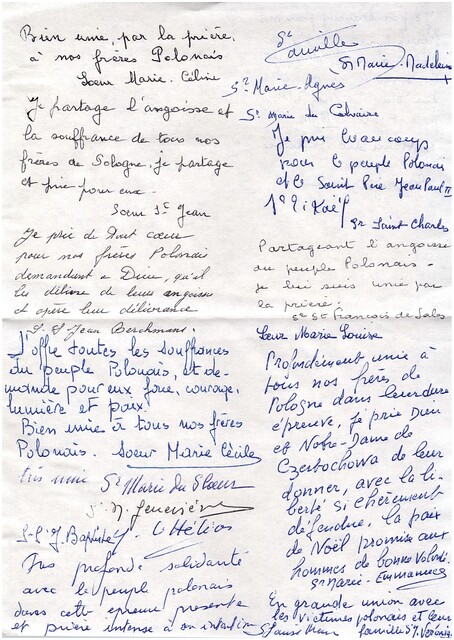 Bien unie, par la prière,
à nos frères Polonais
Sœur Marie-Céline
Je partage l'angoisse et
la souffrance de tous nos
frères de Pologne, je partage
et prie pour eux.
Sœur St Jean
Je prie de tout cœur
pour nos frères Polonais
demandant à Dieu, qu'il
les délivre de leurs angoisses
et opère leur délivrance
S. St Jean Berchmans.
J'offre toutes les souffrances
du peuple Polonais, et de-
mande pour eux force, courage,
lumière et paix!
Bien unie à tous nos frères
Polonais. Sœur Marie Cécile
très unie Sr Marie du S Cœur
Sr M. Geneviève
S. St J. Baptiste Sr Hélios
Ma profonde solidarité
avec le peuple polonais
dans cette épreuve présente
et prière intense à son intention
Sr
Sr Marie-Madeleine
Sr Marie-Agnès
Sr Marie du Calvaire
Je prie beaucoup
pour le peuple Polonais
et le Saint Père Jean Paul II
Sr Saint Charles
Partageant l'angoisse
du peuple Polonais -
je lui suis unie par
la prière.
Sr St François de Sales
Sœur Marie Louise
Profondément unie à
tous nos frères de
Pologne dans leur dure
épreuve, je prie Dieu
et Notre-Dame de
Czestochowa de leur
donner, avec la li-
berté si chèrement
défendue, la paix
de Noël promise aux
hommes de bonne Volonté.
Sr Marie-Emmanuel
En grande union avec
les victimes polonais et leur
famille Sr M.